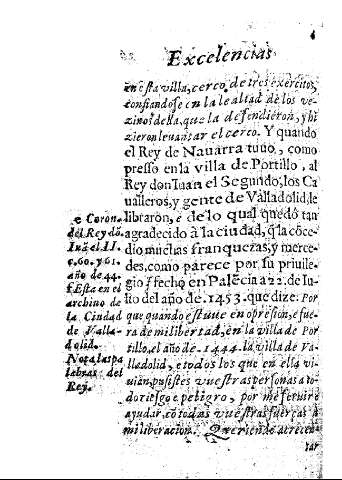 Excelencias
en esta villa, cerco de tres exercitos,
confiandose en la lealtad de los ve-
zinos della, que la defendieron, y hi
zieron leuantar el cerco. Y quando
el Rey de Nauarra tuuo, como
presso en la villa de Portillo, al
Rey don Iuan el Segundo, los Ca
ualleros, y gente de Valladolid, le
libraron, e de lo qual quedó tan
agradecido à la ciudad, q̃ la cõce-
dio muchas franquezas, y merce-
des, como parece por su priuile-
gio, f fecho en Palẽcia a 22. de Iu-
lio del año de 1453. que dize: Por
que quando estuue en opresion, e fue
ra de mi libertad, en la villa de Por
tillo, el año de 1444. la villa de Va-
lladolid, e todos los que en ella vi-
uian, pusistes vuestras personas a to-
do riesgo e peligro, por me seruir e
ayudar, cõ todas vuestras fuerças à
mi liberacion. Queriendo acrecen
tar
e Coron.
del Rey dõ
Iuã el II.
c. 60. y 61.
año de 44.
f Esta en el
archiuo de
la Ciudad
de Valla-
dolid.
Nota las pa
labras del
Rey.